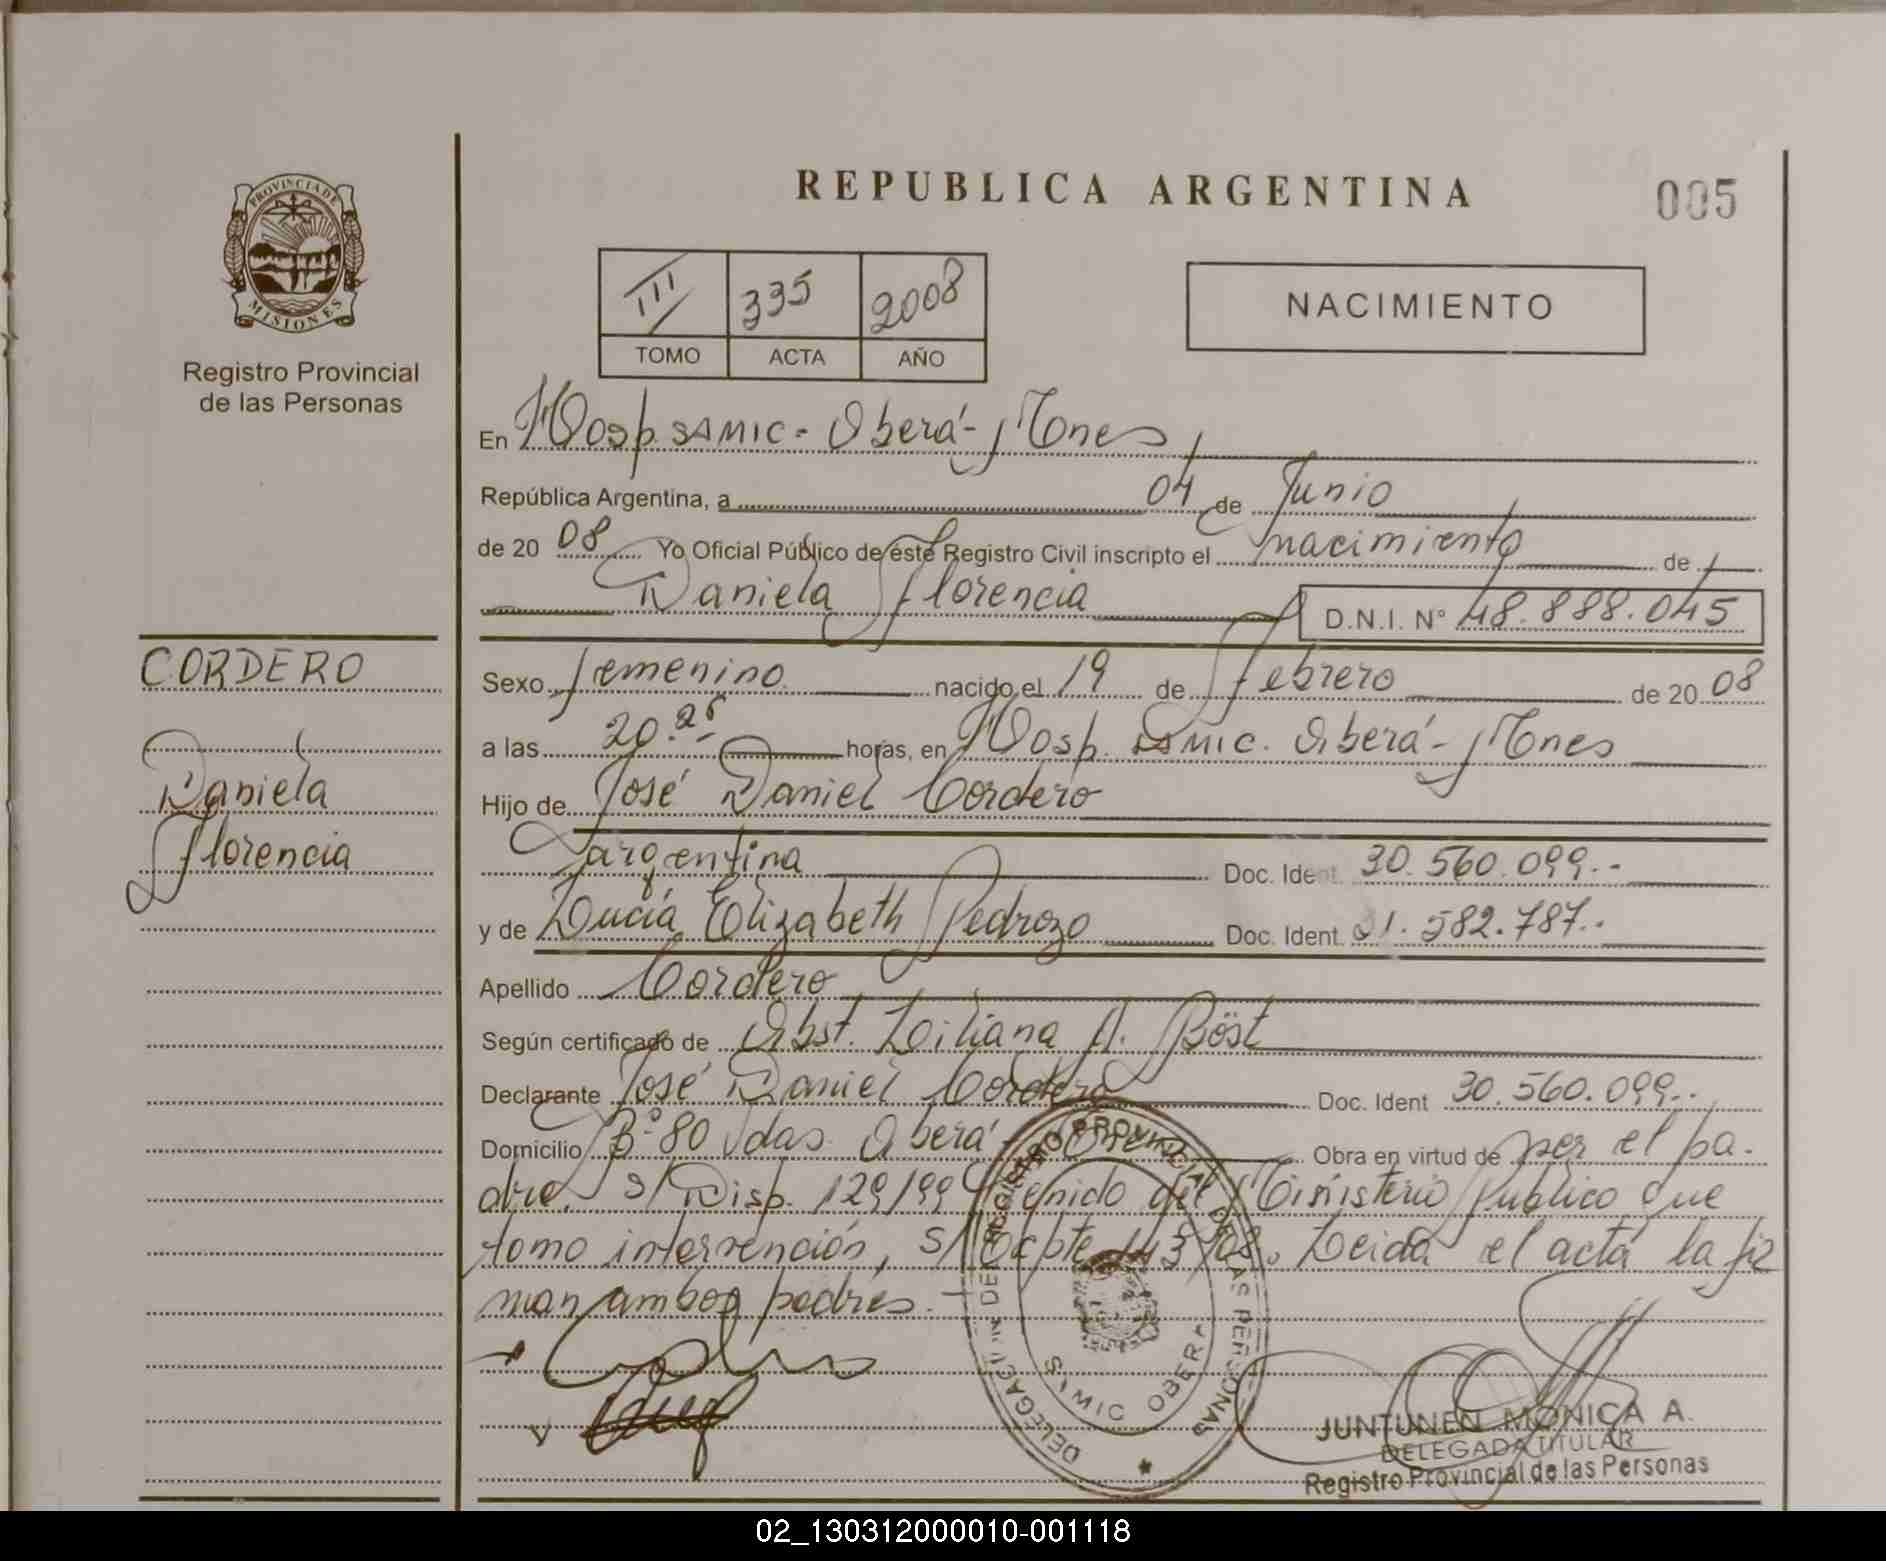 REPUBLICA ARGENTINA
005
PROVINCIA DE
MISIONES
Registro Provincial
de las Personas
III 335 2008
TOMO ACTA AÑO
NACIMIENTO
En Hosp. SAMIC - Oberá - Mnes
República Argentina, a 04 de Junio
de 20 08 Yo Oficial Público de éste Registro Civil inscripto el nacimiento de
Daniela Florencia D.N.I. N° 48.888.045
CORDERO
Daniela
Florencia
Sexo femenino nacido el 19 de Febrero de 20 08
a las 20.25 horas, en Hosp. SAMIC. Oberá - Mnes
Hijo de José Daniel Cordero
argentina Doc. Ident. 30.560.099.-
y de Lucía Elizabeth Pedrozo Doc. Ident. 31.582.787.-
Apellido Cordero
Según certificado de Obst. Liliana A. Böst
Declarante José Daniel Cordero Doc. Ident 30.560.099.-
Domicilio B° 80 Vdas. Oberá - Obra en virtud de ser el pa-
dre. S/ Disp. 129/99 del Ministerio Publico que
tomo intervención, s/ Expte 113/08. Leida el acta la fir
man ambos padres.-
DELEGACION DEL REGISTRO PROVINCIAL DE LAS PERSONAS
SAMIC OBERA
JUNTUNEN MONICA A.
DELEGADA TITULAR
Registro Provincial de las Personas
02_130312000010-001118